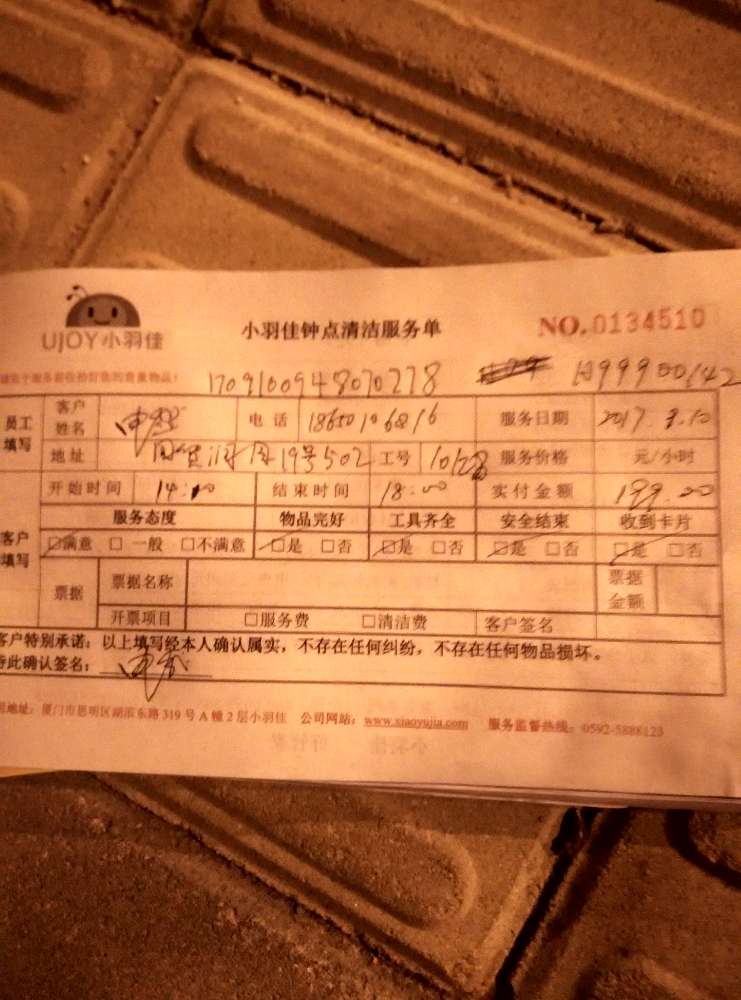 UJOY小羽佳 小羽佳钟点清洁服务单 NO.0134510
1709100948070278
员工填写 客户姓名 电话 18650196816 服务日期 2017.
地址 19号502 工号 服务价格 元/小时
开始时间 结束时间 18:00 实付金额 199.00
客户填写 服务态度 物品完好 工具齐全 安全结束 收到卡片
□满意 □一般 □不满意 □是 □否 □是 □否 □是 □否 □是 □否
票据 票据名称 票据金额
开票项目 □服务费 □清洁费 客户签名
客户特别承诺：以上填写经本人确认属实，不存在任何纠纷，不存在任何物品损坏。
此确认签名：
地址：厦门市思明区湖滨东路319号A幢2层小羽佳 公司网站：www.xiaoyujia.com 服务监督热线：0592-5888123